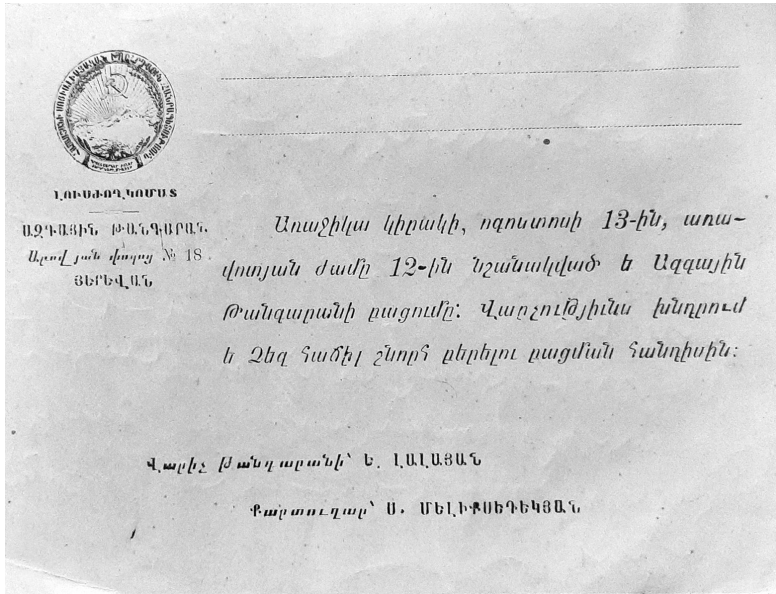 ԼՈՒՍԺՈՂԿՈՄԱՏ
ԱԶԳԱՅԻՆ ԹԱՆԳԱՐԱՆ.
Աբովյան փողոց № 18.
ՅԵՐԵՎԱՆ
Առաջիկա կիրակի, ոգոստոսի 13-ին, առա-
վոտյան ժամը 12-ին նշանակված ե Ազգային
Թանգարանի բացումը: Վարչությիւնս խնդրում
ե Ձեզ հաճիլ շնորհ բերելու բացման հանդիսին:
Վարիչ Թանգարանի՝ Ե. ԼԱԼԱՅԱՆ
Քարտուղար՝ Ս. ՄԵԼԻՔՍԵԴԵԿՅԱՆ